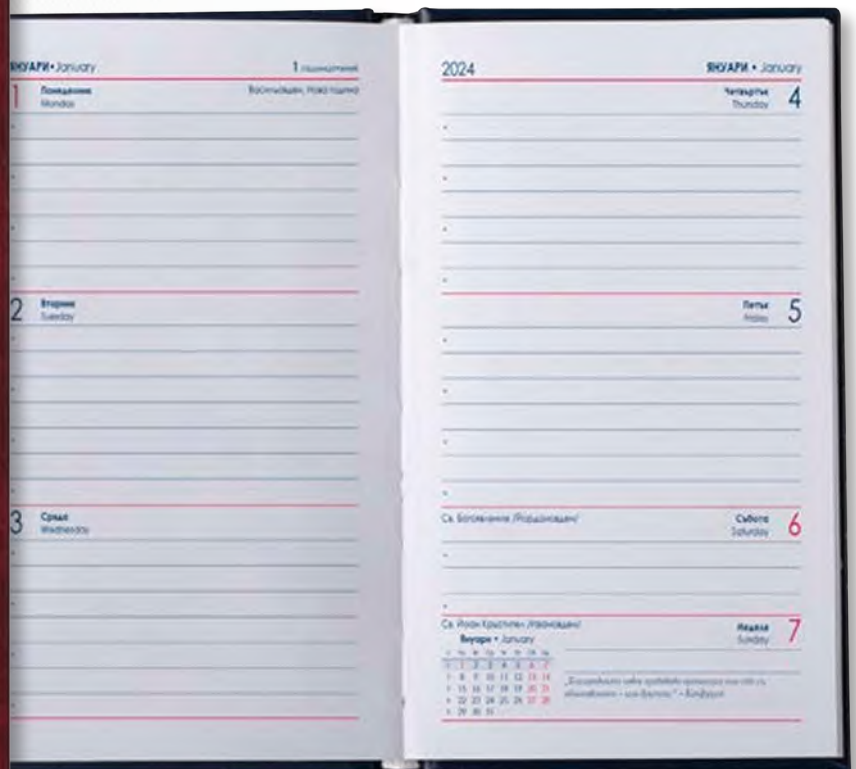 ЯНУАРИ • January
1
1 Понеделник
Monday
Васильовден, Нова година
2 Вторник
Tuesday
3 Сряда
Wednesday
2024
ЯНУАРИ • January
Четвъртък 4
Thursday
Петък 5
Friday
Св. Богоявление /Йордановден/
Събота 6
Saturday
Св. Йоан Кръстител /Ивановден/
Неделя 7
Sunday
Януари • January
1 2 3 4 5 6 7
8 9 10 11 12 13 14
15 16 17 18 19 20 21
22 23 24 25 26 27 28
29 30 31